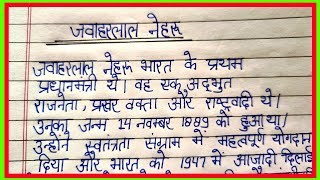 जवाहरलाल नेहरू
जवाहरलाल नेहरू भारत के प्रथम
प्रधानमन्त्री थे। वह एक अद्भुत
राजनेता, प्रखर वक्ता और राष्ट्रवादी थे।
उनका जन्म 14 नवम्बर 1889 को हुआ था।
उन्होंने स्वतंत्रता संग्राम में महत्वपूर्ण योगदान
दिया और भारत को 1947 में आजादी दिलाई